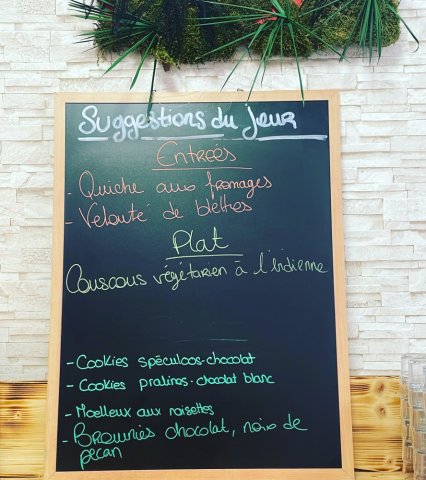 Suggestions du jour
Entreés
- Quiche aux fromages
- Velouté de blettes
Plat
Couscous végétarien à l'indienne
- Cookies spéculoos-chocolat
- Cookies pralinos-chocolat blanc
- Moelleux aux noisettes
- Brownies chocolat, noix de
pecan